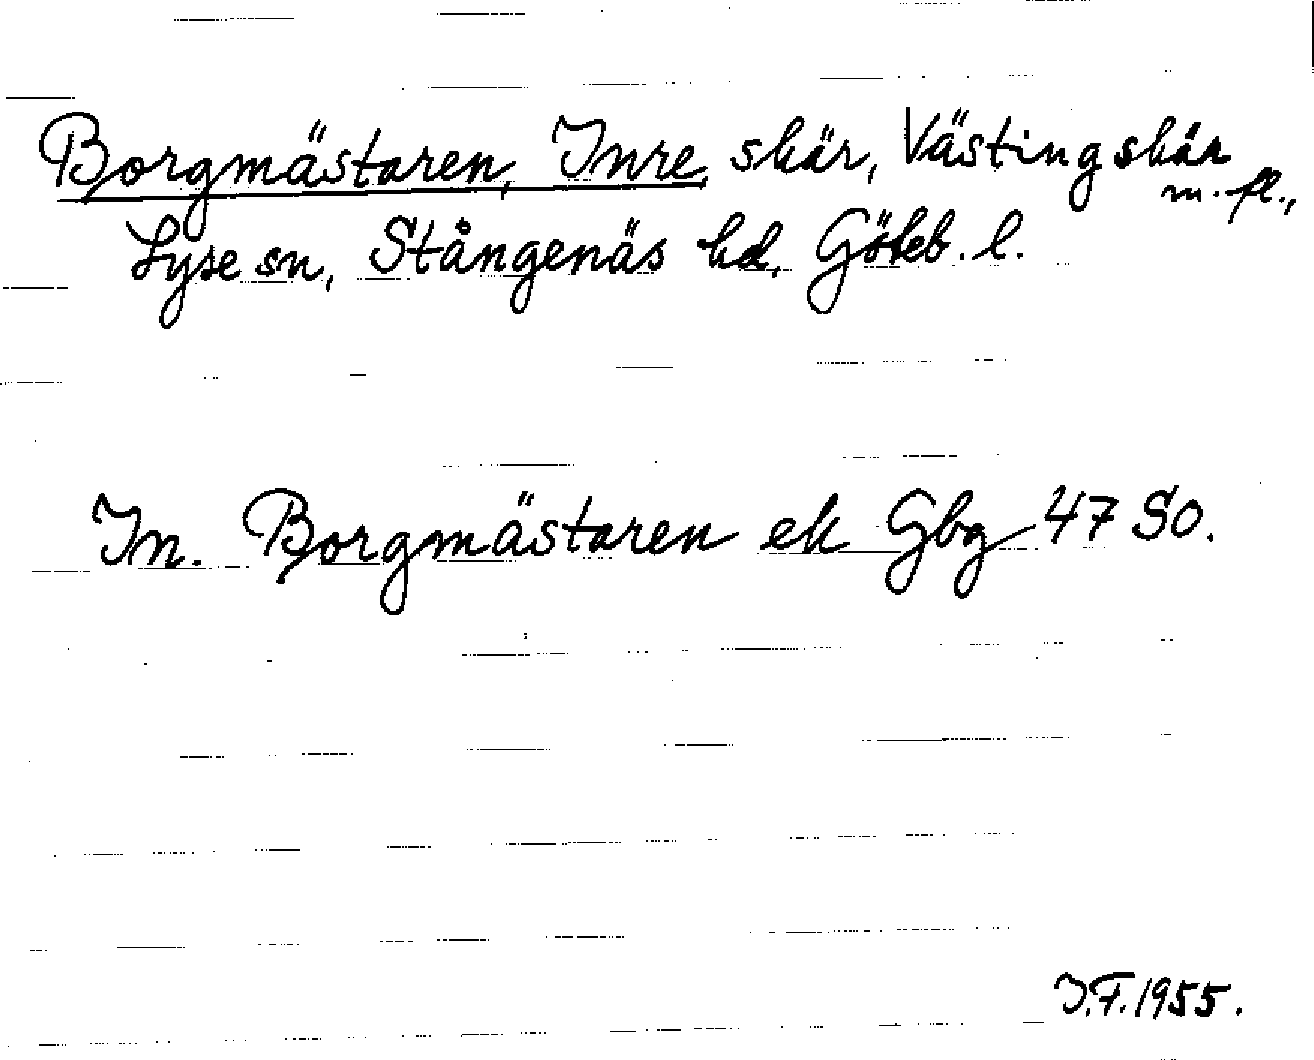 Borgmästaren, Inre, skär, Västingskär
m. fl.,
Lyse sn, Stångenäs hd, Göteb. l.
In. Borgmästaren ek Gbg 47 SO.
J.F. 1955.